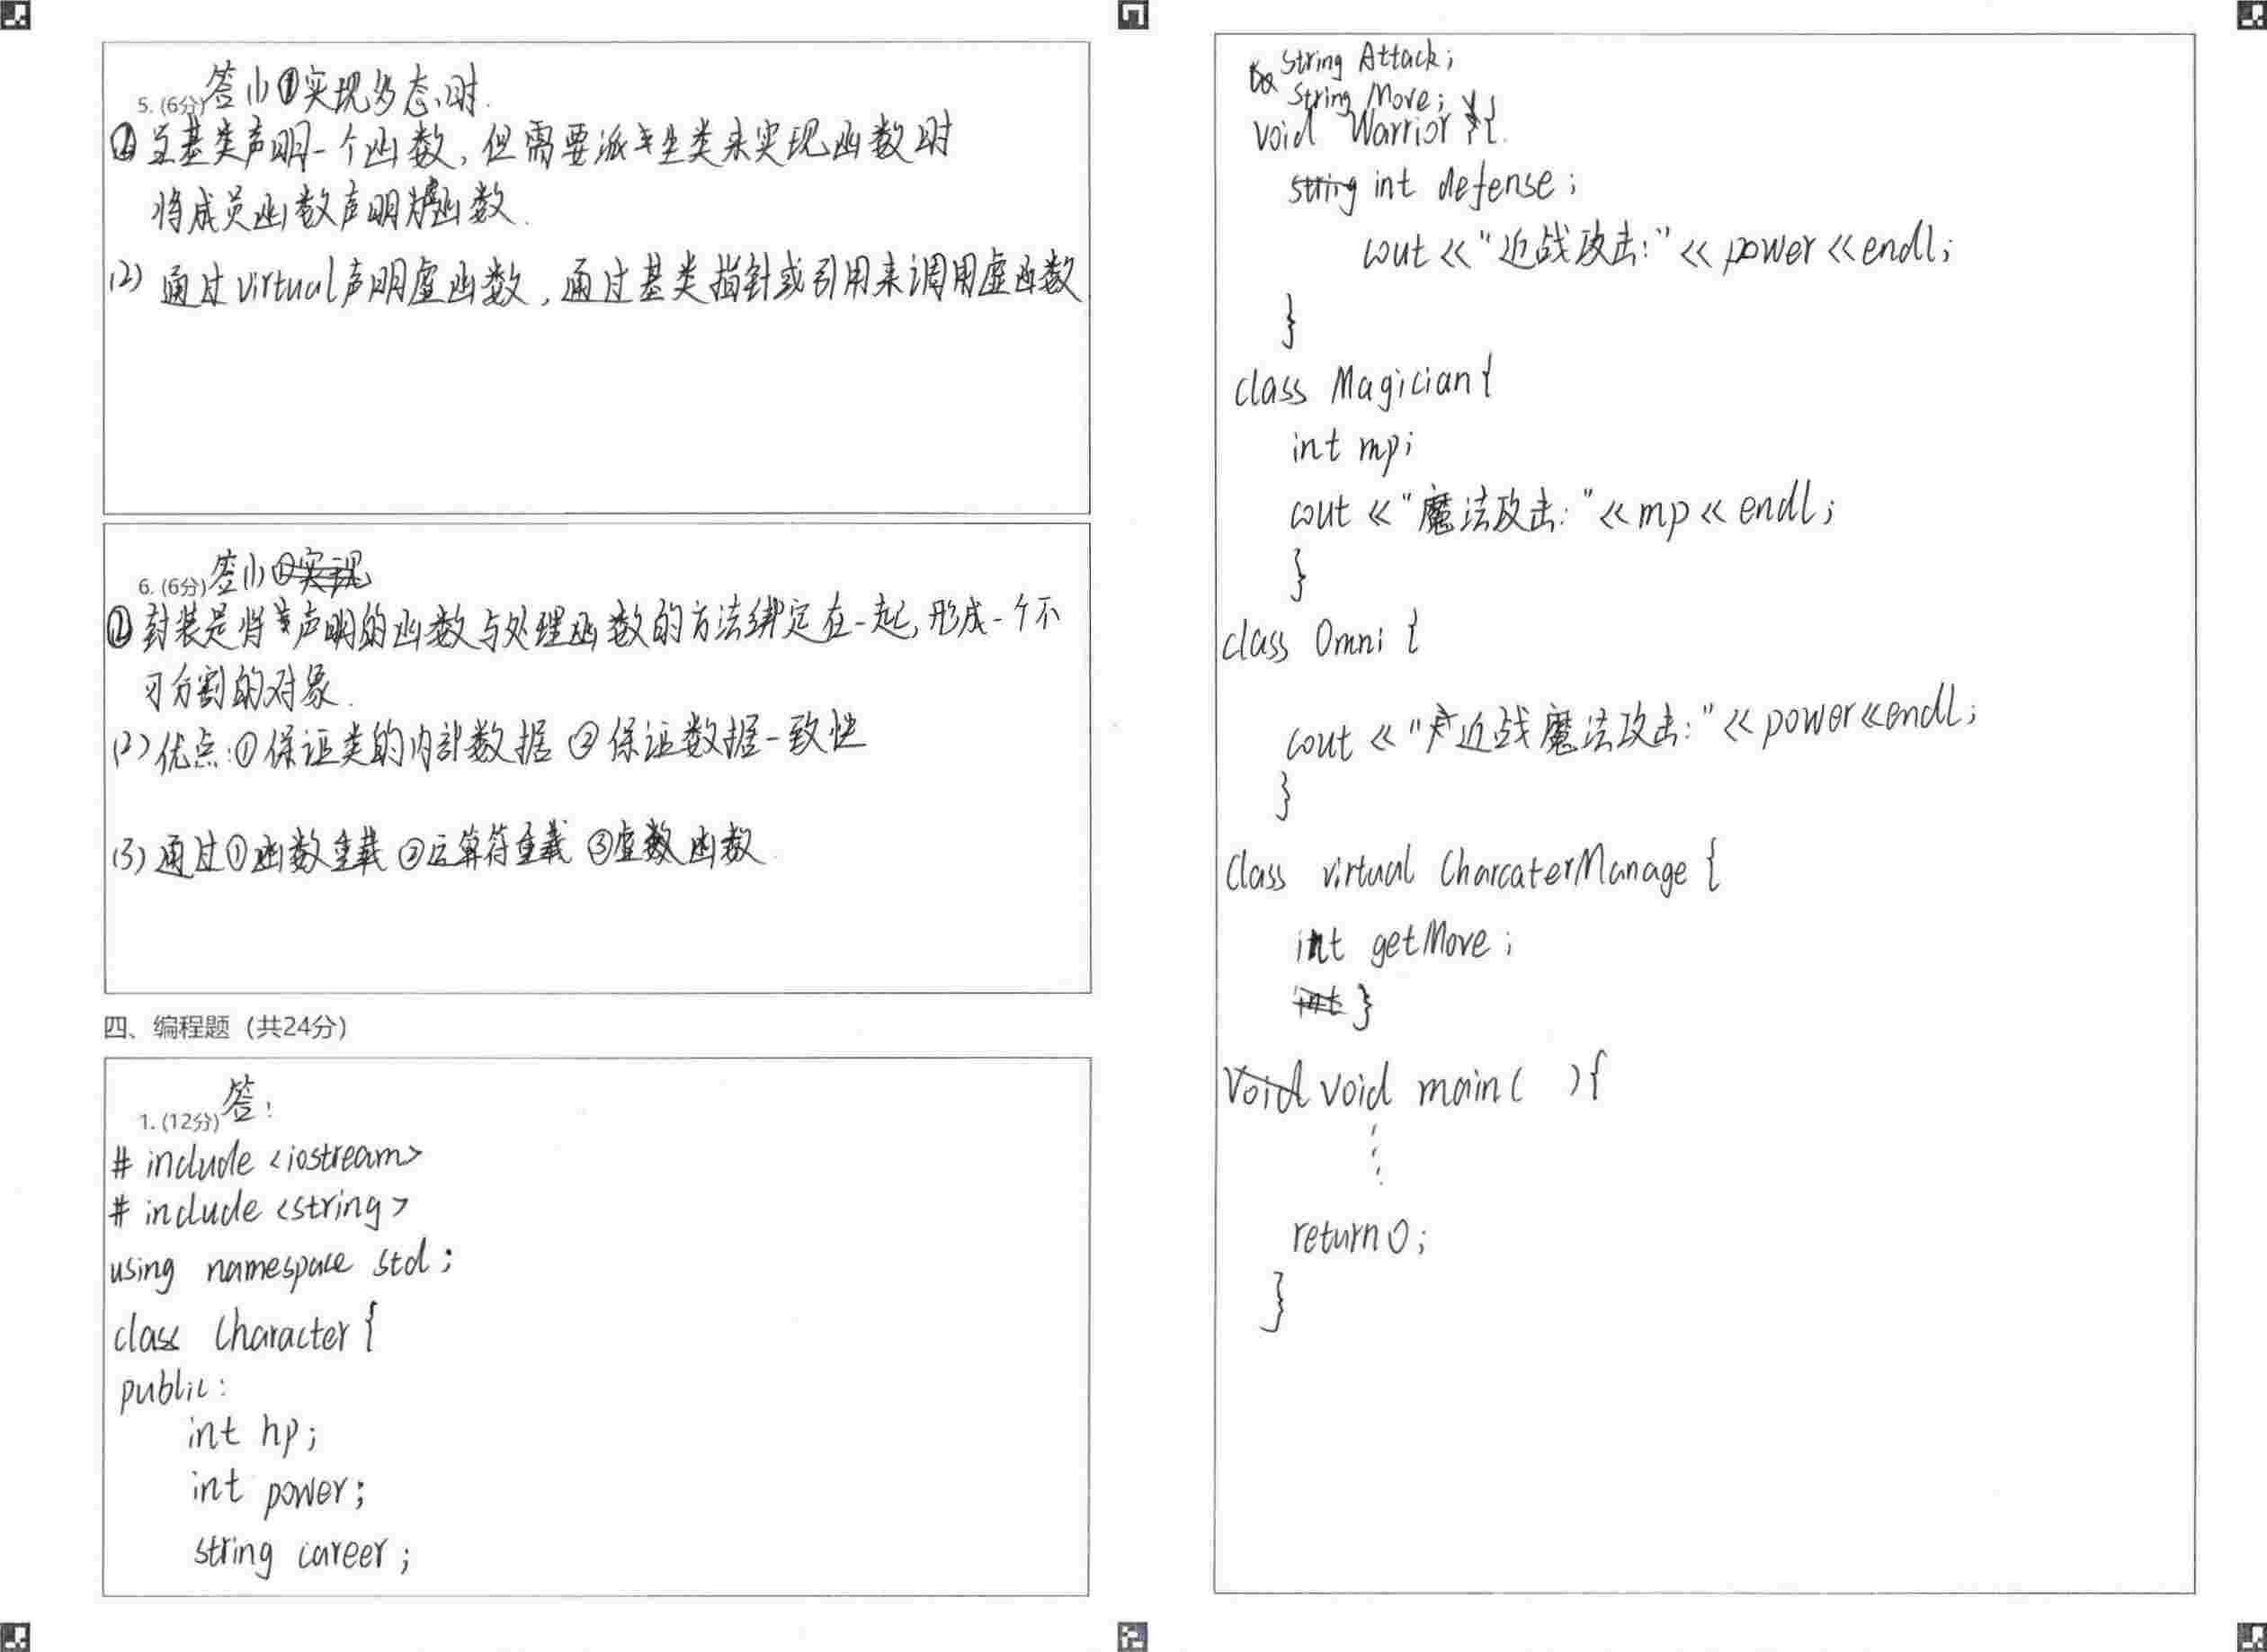 5. (6分) 答(1)①实现多态时.
②当基类声明一个函数,但需要派生类来实现函数时
将成员函数声明为虚函数.
(2) 通过virtual声明虚函数,通过基类指针或引用来调用虚函数
6. (6分) 答(1)
封装是将声明的函数与处理函数的方法绑定在一起,形成一个不
可分割的对象.
(2)优点:①保证类的内部数据 ②保证数据一致性
(3)通过①函数重载 ②运算符重载 ③虚函数
四、编程题（共24分）
1. (12分) 答:
# include <iostream>
# include <string>
using namespace std;
class Character {
public:
int hp;
int power;
string career;
String Attack;
String Move;
void Warrior {
int defense;
cout << "近战攻击:" << power << endl;
}
class Magician {
int mp;
cout << "魔法攻击:" << mp << endl;
}
class Omni {
cout << "近战魔法攻击:" << power << endl;
}
Class virtual CharcaterManage {
int getMove;
}
void main( ){
⋮
return 0;
}